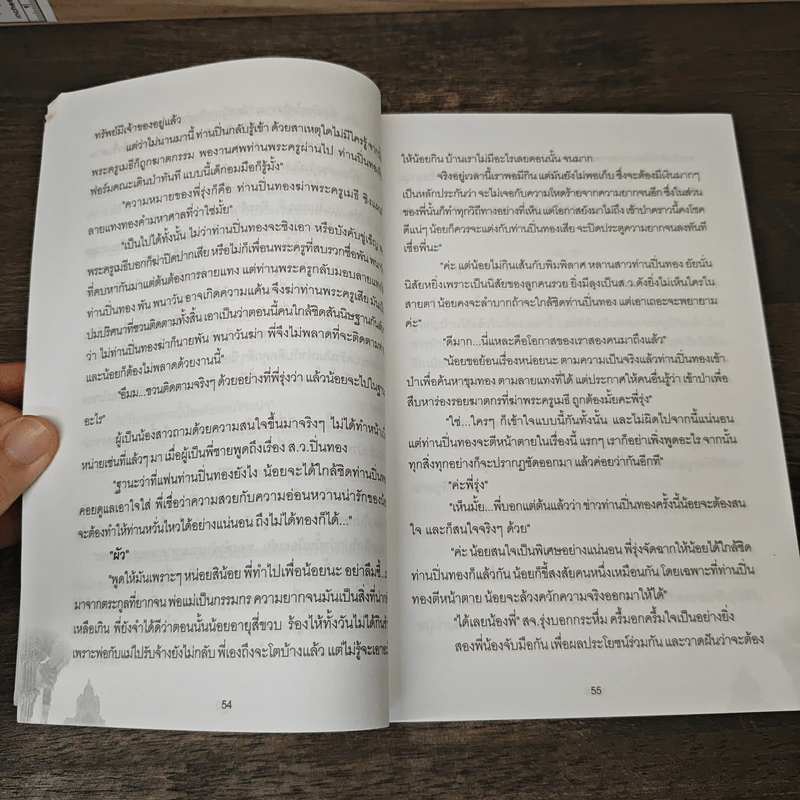 ทรัพย์มีเจ้าของอยู่แล้ว
แต่ว่าไม่นานมานี้ ท่านปิ่นทองกลับรู้เข้า ด้วยสาเหตุใดไม่มีใครรู้
พระครูเมธีก็ถูกฆาตกรรม พองานศพท่านพระครูผ่านไป ท่านปิ่นทอง
ฟอร์มคณะเดินป่าทันที แบบนี้เด็กอมมือก็รู้มั้ง"
"ความหมายของพี่รุ่งก็คือ ท่านปิ่นทองฆ่าพระครูเมธี ชิงแผนที่
ลายแทงทองคำมหาศาลที่ว่าใช่มั้ย"
"เป็นไปได้ทั้งนั้น ไม่ว่าท่านปิ่นทองจะชิงเอา หรือบังคับขู่เข็ญ
พระครูเมธีบอกก็ฆ่าปิดปากเสีย หรือไม่ก็เพื่อนพระครูที่สบรวกชื่อพัน พนาวัน
ที่คบหากันมาแต่ต้นต้องการลายแทง แต่ท่านพระครูกลับมอบลายแทงให้
ท่านปิ่นทอง พัน พนาวัน อาจเกิดความแค้น จึงฆ่าท่านพระครูเสีย มันเป็น
ปมปริศนาที่ชวนติดตามทั้งสิ้น เอาเป็นว่าตอนนี้คนใกล้ชิดสันนิษฐานกัน
ว่า ไม่ท่านปิ่นทองฆ่าก็นายพัน พนาวันฆ่า พี่จึงไม่พลาดที่จะติดตาม
และน้อยก็ต้องไม่พลาดด้วยงานนี้"
"อืมม...ชวนติดตามจริงๆ ด้วยอย่างที่พี่รุ่งว่า แล้วน้อยจะไปในฐานะ
อะไร"
ผู้เป็นน้องสาวถามด้วยความสนใจขึ้นมาจริงๆ ไม่ได้ทำหน้า
หน่ายเช่นที่แล้วๆ มา เมื่อผู้เป็นพี่ชายพูดถึงเรื่อง ส.ว.ปิ่นทอง
"ฐานะว่าที่แฟนท่านปิ่นทองยังไง น้อยจะได้ใกล้ชิดท่านปิ่นทอง
คอยดูแลเอาใจใส่ พี่เชื่อว่าความสวยกับความอ่อนหวานน่ารักของน้อย
จะต้องทำให้ท่านหวั่นไหวได้อย่างแน่นอน ถึงไม่ได้ทองก็ได้..."
"ผัว"
"พูดให้มันเพราะๆ หน่อยสิน้อย พี่ทำไปเพื่อน้อยนะ อย่าลืมซี้...
มาจากตระกูลที่ยากจน พ่อแม่เป็นกรรมกร ความยากจนมันเป็นสิ่งที่
เหลือเกิน พี่ยังจำได้ดีว่าตอนนั้นน้อยอายุสี่ขวบ ร้องไห้ทั้งวันไม่ได้กิน
เพราะพ่อกับแม่ไปรับจ้างยังไม่กลับ พี่เองถึงจะโตบ้างแล้ว แต่ไม่รู้จะเอา
54
ให้น้อยกิน บ้านเราไม่มีอะไรเลยตอนนั้น จนมาก
จริงอยู่เวลานี้เราพอมีกิน แต่มันยังไม่พอเก็บ ซึ่งจะต้องมีเงินมากๆ
เป็นหลักประกันว่า จะไม่เจอกับความโหดร้ายจากความยากจนอีก ซึ่งในส่วน
ของพี่นั้นก็ทำทุกวิถีทางอย่างที่เห็น แต่โอกาสยังมาไม่ถึง เข้าป่าคราวนี้คงโชค
ดีแน่ๆ น้อยก็ควรจะแต่งกับท่านปิ่นทองเสีย จะปิดประตูความยากจนลงทันที
เชื่อพี่นะ"
"ค่ะ แต่น้อยไม่กินเส้นกับพิมพิลาศ หลานสาวท่านปิ่นทอง ยัยนั่น
นิสัยหยิ่งเพราะเป็นนิสัยของลูกคนรวย ยิ่งมีลุงเป็นส.ว.ดังยิ่งไม่เห็นใครใน
สายตา น้อยคงจะลำบากถ้าจะใกล้ชิดท่านปิ่นทอง แต่เอาเถอะจะพยายาม
ค่ะ"
"ดีมาก...นี่แหละคือโอกาสของเราสองคนมาถึงแล้ว"
"น้อยขอย้อนเรื่องหน่อยนะ ตามความเป็นจริงแล้วท่านปิ่นทองเข้า
ป่าเพื่อค้นหาขุมทอง ตามลายแทงที่ได้ แต่ประกาศให้คนอื่นรู้ว่า เข้าป่าเพื่อ
สืบหาร่องรอยฆาตกรที่ฆ่าพระครูเมธี ถูกต้องมั้ยคะพี่รุ่ง"
"ใช่...ใครๆ ก็เข้าใจแบบนี้กันทั้งนั้น และไม่ผิดไปจากนี้แน่นอน
แต่ท่านปิ่นทองจะตีหน้าตายในเรื่องนี้ แรกๆ เราก็อย่าเพิ่งพูดอะไร จากนั้น
ทุกสิ่งทุกอย่างก็จะปรากฏชัดออกมา แล้วค่อยว่ากันอีกที"
"ค่ะพี่รุ่ง"
"เห็นมั้ย...พี่บอกแต่ต้นแล้วว่า ข่าวท่านปิ่นทองครั้งนี้น้อยจะต้องสน
ใจ และก็สนใจจริงๆ ด้วย"
"ค่ะ น้อยสนใจเป็นพิเศษอย่างแน่นอน พี่รุ่งจัดฉากให้น้อยได้ใกล้ชิด
ท่านปิ่นทองก็แล้วกัน น้อยก็ขี้สงสัยคนหนึ่งเหมือนกัน โดยเฉพาะที่ท่านปิ่น
ทองตีหน้าตาย น้อยจะล้วงควักความจริงออกมาให้ได้"
"ได้เลยน้องพี่" สจ.รุ่งบอกกระหึ่ม ครึ้มอกครึ้มใจเป็นอย่างยิ่ง
สองพี่น้องจับมือกัน เพื่อผลประโยชน์ร่วมกัน และวาดฝันว่าจะต้อง
55